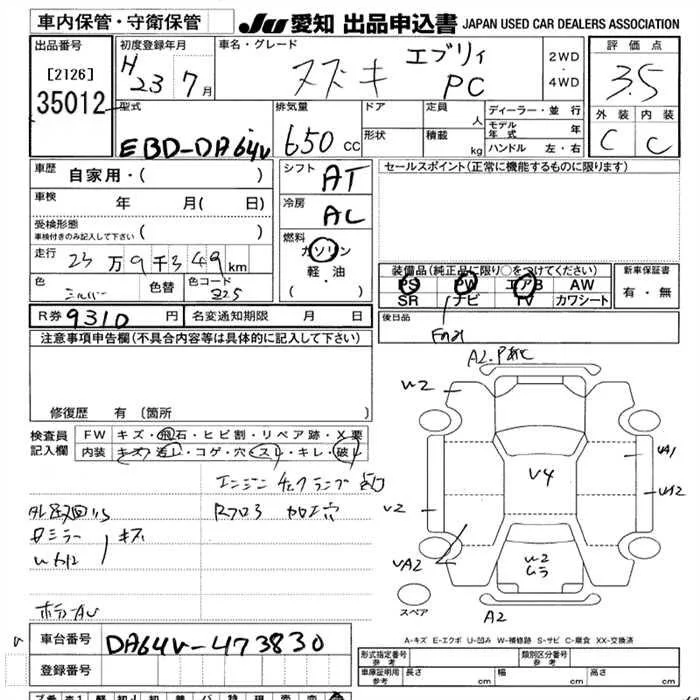 車内保管・守衛保管
JU 愛知 出品申込書 JAPAN USED CAR DEALERS ASSOCIATION
出品番号
[2126]
35012
初度登録年月
H 23 7月
車名・グレード
スズキ エブリィ
PC
2WD
・
4WD
評価点
3.5
外装 内装
C C
型式
EBD-DA64V
排気量
650 CC
ドア
形状
定員 人
積載 kg
ディーラー・並行
モデル年式 年
ハンドル 左・右
車歴
自家用・( )
車検 年 月( 日)
受検形態
車検付きのみ記入して下さい
( )
走行 23万9千349km
色 シルバー 色替 色コード Z2S
シフト AT
冷房 AC
燃料
ガソリン
軽・油
・( )
セールスポイント(正常に機能するものに限ります)
装備品(純正品に限り○をつけてください)
PS PW エアB AW
SR ナビ TV カワシート
新車保証書
有・無
R券 9310 円
名変通知期限 月 日
後日品
注意事項申告欄(不具合内容等は具体的に記入して下さい)
修復歴 有(箇所 )
検査員記入欄
FW キズ・飛石・ヒビ割・リペア跡・X要
内装 キズ・汚レ・コゲ・穴・スレ・キレ・破レ
エンジンチェックランプ点灯
Rフロア 加工穴
ミラー
キズ
A2
U2
U2
UA2
V4
U2
ムラ
UA1
A2
スペア
A-キズ E-エクボ U-凹み W-補修跡 S-サビ C-腐食 XX-交換済
車台番号 DA64V-473830
登録番号
形式指定番号 参考
類別区分番号 参考
車庫証明用 参考 長さ cm 幅 cm 高さ cm